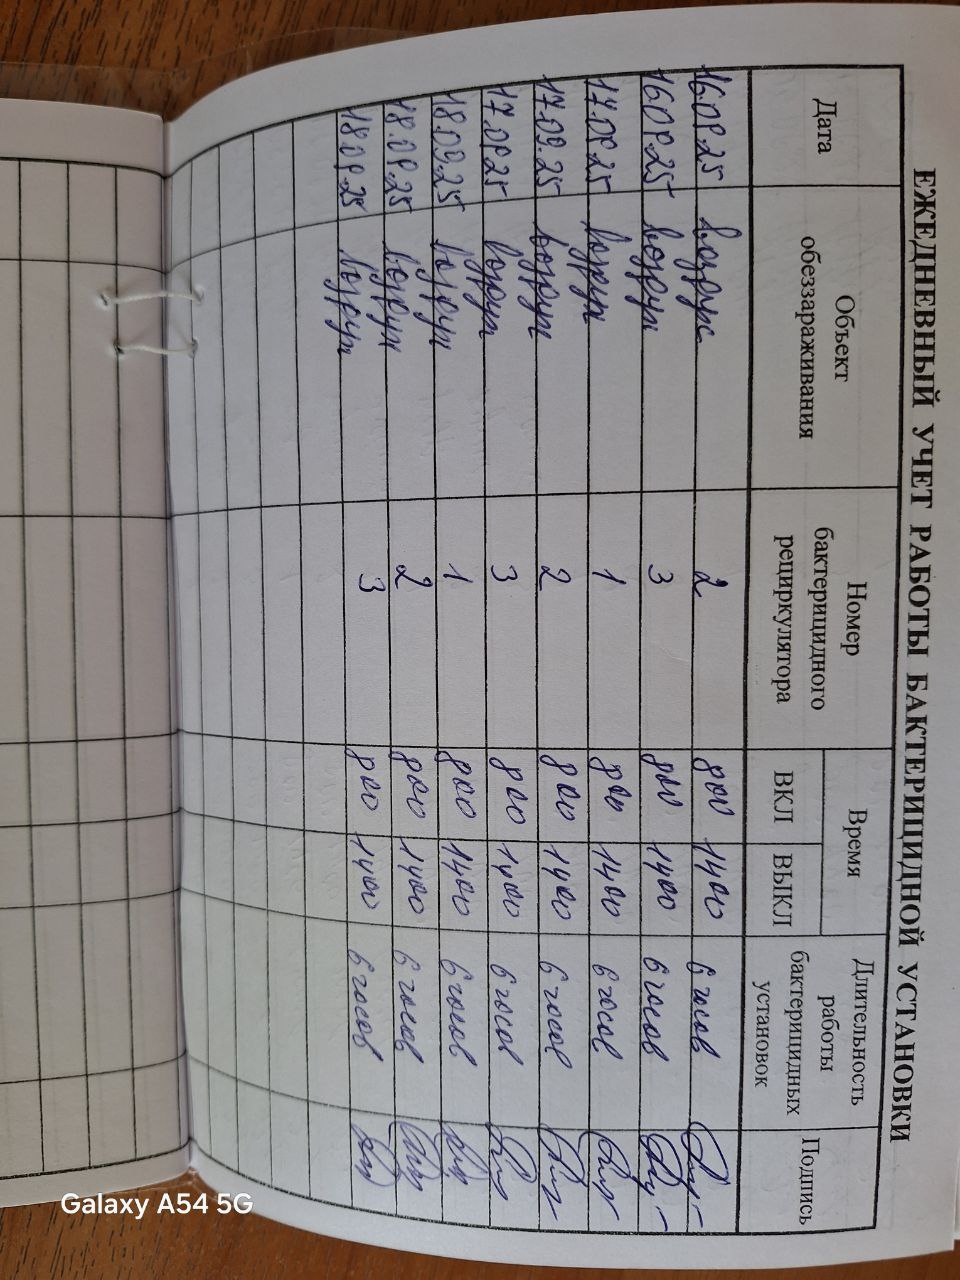 ЕЖЕДНЕВНЫЙ УЧЕТ РАБОТЫ БАКТЕРИЦИДНОЙ УСТАНОВКИ
Дата
Объект
обеззараживания
Номер
бактерицидного
рециркулятора
Время
ВКЛ
ВЫКЛ
Длительность
работы
бактерицидных
установок
Подпись
16.09.25 воздух 2 800 1400 6 часов
16.09.25 воздух 3 800 1400 6 часов
17.09.25 воздух 1 800 1400 6 часов
17.09.25 воздух 2 800 1400 6 часов
17.09.25 воздух 3 800 1400 6 часов
18.09.25 воздух 1 800 1400 6 часов
18.09.25 воздух 2 800 1400 6 часов
18.09.25 воздух 3 800 1400 6 часов
Galaxy A54 5G